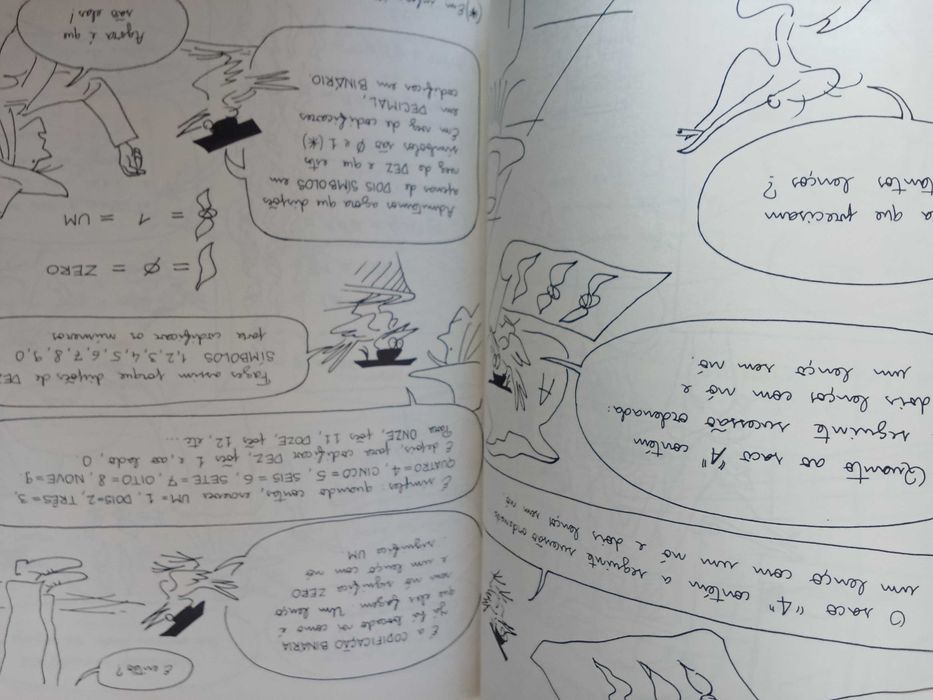 O saco "4" contém a seguinte sucessão ordenada:
um lenço com um nó e dois lenços sem nó.
Quanto ao saco "A" contém
seguinte sucessão ordenada:
dois lenços com nó e
um lenço sem nó.
A
a que precisam
tantos lenços?
E então?
É a CODIFICAÇÃO BINÁRIA
já há bocado vi como é
que eles fazem. Um lenço
sem nó significa ZERO
e um lenço com nó
significa UM
É simples: quando contas, escreves UM = 1, DOIS = 2, TRÊS = 3,
QUATRO = 4, CINCO = 5, SEIS = 6, SETE = 7, OITO = 8, NOVE = 9
E depois, para codificar DEZ, pões 1 e, ao lado, 0.
Para ONZE, pões 11, DOZE, pões 12, etc...
Fazes assim porque dispões de DEZ
SÍMBOLOS 1, 2, 3, 4, 5, 6, 7, 8, 9, 0
para codificar os números
= Ø = ZERO
= 1 = UM
Admitamos agora que dispões
apenas de DOIS SÍMBOLOS em
vez de DEZ e que estes
símbolos são Ø e 1 (*)
Em vez de codificares
em DECIMAL,
codificas em BINÁRIO.
Agora é que
são elas!
(*) Em